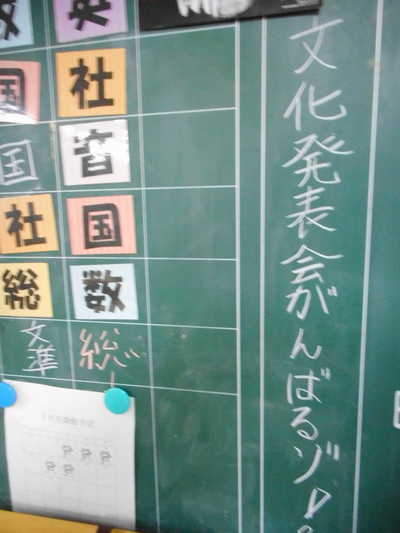 文化発表会がんばるゾ!
英
社
音
国
数
総
数
国
国
社
総
文準